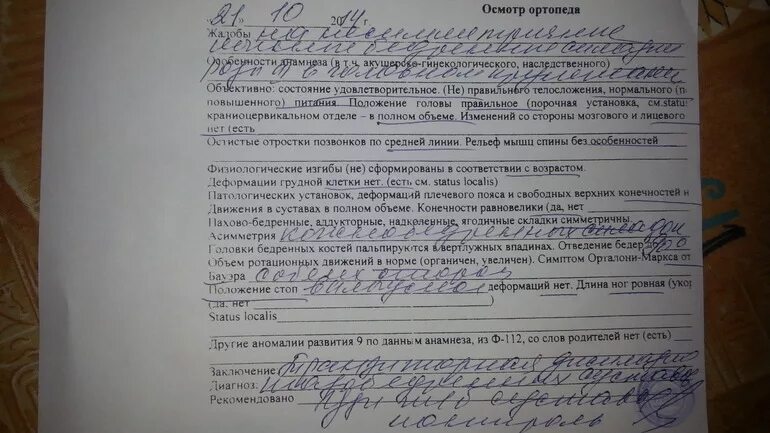 Осмотр ортопеда
«21» 10 2014 г.
Жалобы на несимметричные
бедренные складки
Особенности анамнеза (в т.ч. акушерско-гинекологического, наследственного)
в головном предлежании
Объективно: состояние удовлетворительное. (Не) правильного телосложения, нормального (п
повышенного) питания. Положение головы правильное (порочная установка, см.statu
краниоцервикальном отделе – в полном объеме. Изменений со стороны мозгового и лицевого
нет (есть
Остистые отростки позвонков по средней линии. Рельеф мышц спины без особенностей
Физиологические изгибы (не) сформированы в соответствии с возрастом.
Деформации грудной клетки нет. (есть см. status localis)
Патологических установок, деформаций плечевого пояса и свободных верхних конечностей н
Движения в суставах в полном объеме. Конечности равновелики (да, нет
Пахово-бедренные, аддукторные, надколенные, ягодичные складки симметричны.
Асимметрия складок
Головки бедренных костей пальпируются в вертлужных впадинах. Отведение бедер до 80
Объем ротационных движений в норме (органичен, увеличен). Симптом Орталони-Маркса от
Бауэра с обеих сторон
Положение стоп вальгусное деформаций нет. Длина ног ровная (укор
(да, нет )
Status localis
Другие аномалии развития 9 по данным анамнеза, из Ф-112, со слов родителей нет (есть)
Заключение: Транзиторная дисплазия
Диагноз: тазобедренных суставов
Рекомендовано суставов
контроль